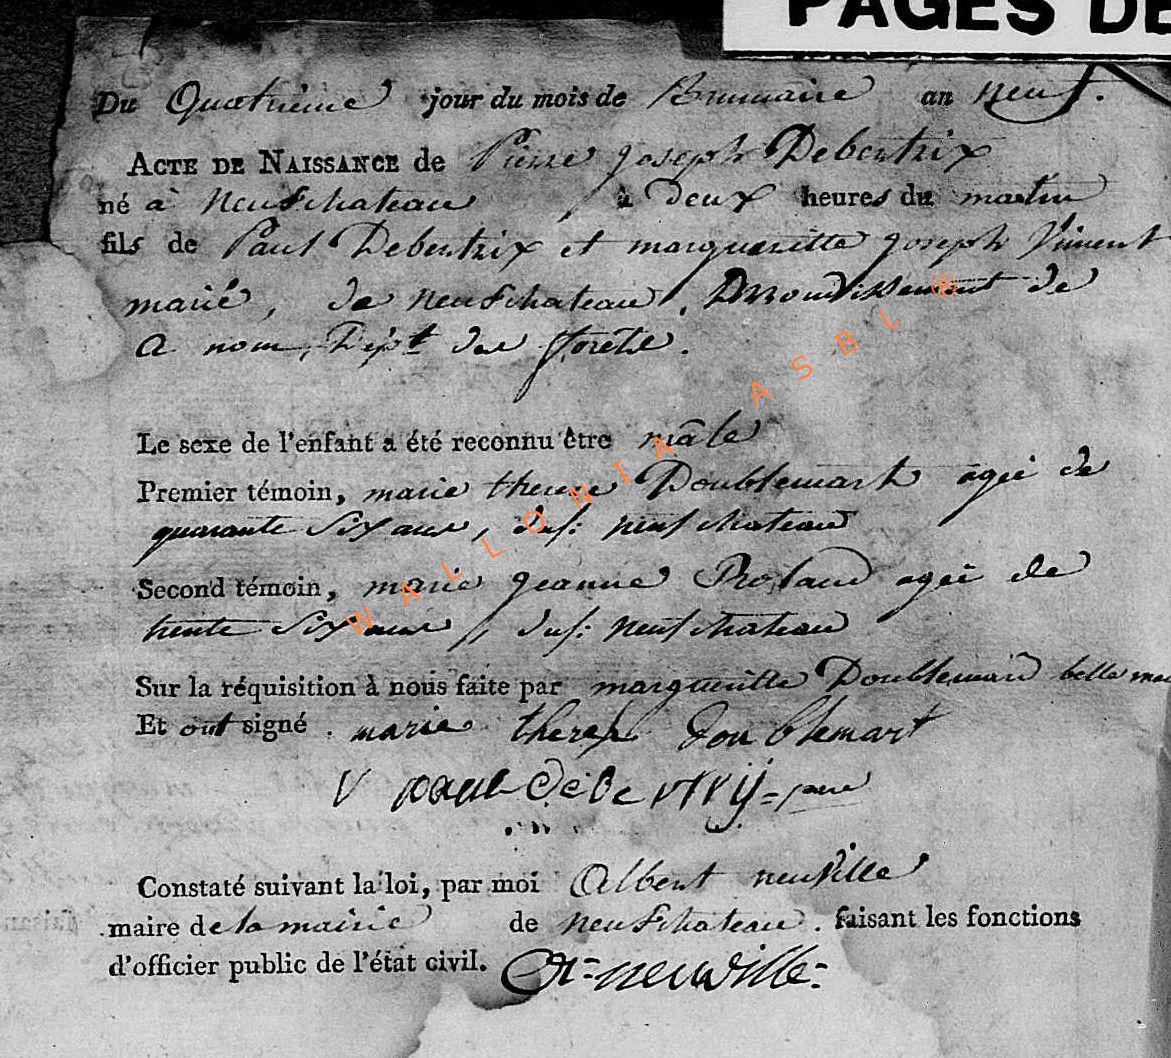 PAGES DE
Du Quatrieme jour du mois de Brumaire an neuf.
ACTE DE NAISSANCE de Pierre joseph Debertrix
né à neufchateau à deux heures du matin
fils de Paul Debertrix et margueritte joseph
marié, de neufchateau, Arrondissement de
a nom, Dépt des forêts.
Le sexe de l'enfant a été reconnu être mâle
Premier témoin, marie therese Doublemart agée de
quarante six ans, dud: neufchateau
Second témoin, marie jeanne agée de
trente six ans, dud: neufchateau
Sur la réquisition à nous faite par margueritte Doublemard belle
Et ont signé. marie therese doublemart
paul
Constaté suivant la loi, par moi Albert neuville
maire de la mairie de neufchateau. faisant les fonctions
d'officier public de l'état civil. A= neuville=
WALLONIA ASBL ®